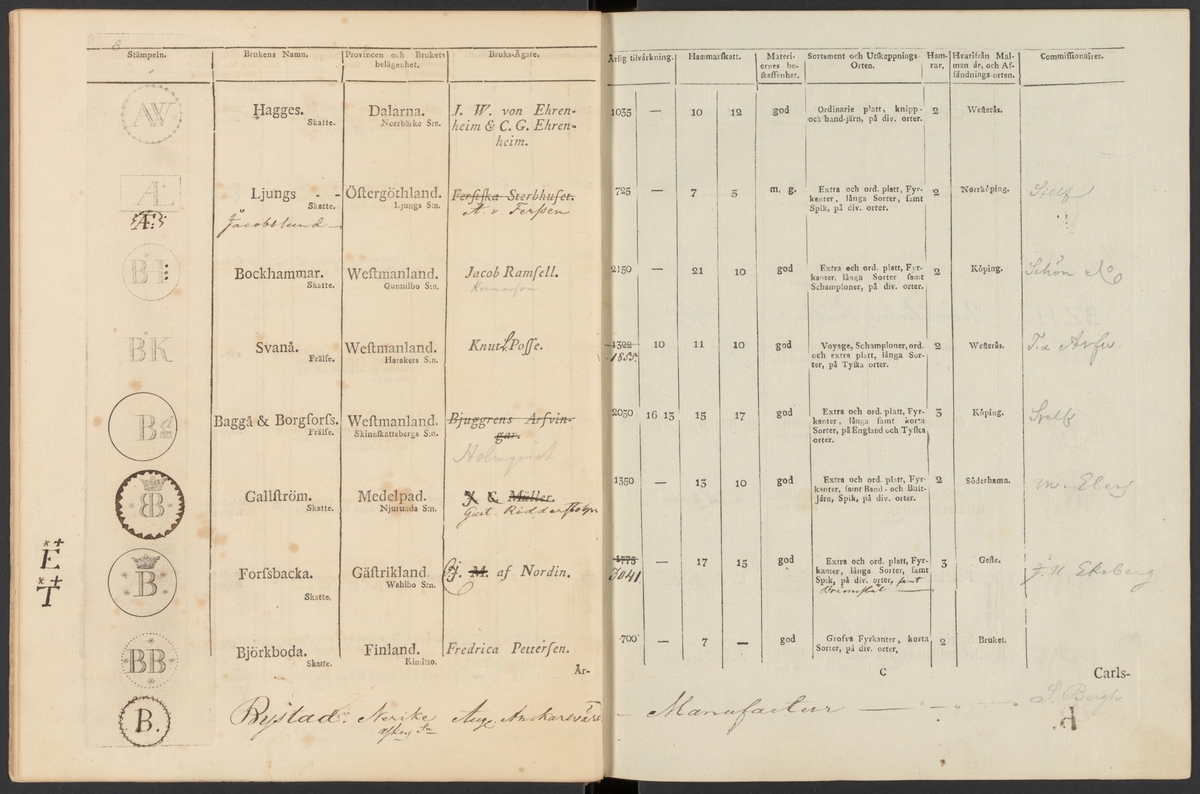 Stämpeln. Brukens Namn. Provincen och Brukets belägenhet. Bruks-Ägare. Årlig tilvärkning. Hammarſkatt. Materiernes beskaffenhet. Sortement och Utſkeppnings-Orten. Hamrar. Hvarifrån Malmen är, och Afſändnings-orten. Commiſſionairer.
AW Hagges. Dalarna. J. W. von Ehren- 1035 — 10 12 god Ordinarie platt, knipp- 2 Weſterås.
Skatte. Norrbärke S:n. heim & C. G. Ehren- och band-järn, på div. orter.
heim.
ÆL Ljungs - - Öſtergöthland. Ferſiſka Sterbhuſet. 725 — 7 5 m. g. Extra och ord. platt, Fyr- 2 Norrköping. Stelf
Skatte. Ljungs S:n. A. v. Ferſsen kanter, långa Sorter, ſamt
Æ: Jacobslund Spik, på div. orter.
BH Bockhammar. Weſtmanland. Jacob Ramſell. 2150 — 21 10 god Extra och ord. platt, Fyr- 2 Köping. Schön
Skatte. Gunnilbo S:n. Hermanson kanter, långa Sorter ſamt
Schamploner, på div. orter.
BK Svanå. Weſtmanland. Knut Poſſe. 1322 10 11 10 god Voyage, Schamploner, ord. 2 Weſterås.
Frälſe. Harakers S:n. 1855. och extra platt, långa Sor-
ter, på Tyſka orter.
B Baggå & Borgforſs. Weſtmanland. Bjuggrens Arfvin- 2030 16 13 15 17 god Extra och ord. platt, Fyr- 3 Köping. Stelf
Frälſe. Skinnſkattebergs S:n. gar. kanter, långa ſamt korta
Holmqvist Sorter, på England och Tyſka
orter.
BB Gallſtröm. Medelpad. J. C. Müller. 1350 — 13 10 god Extra och ord. platt, Fyr- 2 Söderhamn.
Skatte. Njurunda S:n. Gust. kanter, ſamt Band- och Bult-
Järn, Spik, på div. orter.
E
T
B Forſsbacka. Gäſtrikland. J. M. af Nordin. 1775 — 17 15 god Extra och ord. platt, Fyr- 3 Gefle. Ekoberg
Skatte. Wahlbo S:n. 3041 kanter, långa Sorter, ſamt
Spik, på div. orter, samt
BB Björkboda. Finland. Fredrica Petterſen. 700 — 7 — god Grofva Fyrkanter, korta 2 Bruket.
Skatte. Kimitto. Sorter, på div. orter.
År- C Carls-
B. Rystad Nerike Aug. Manufactur S. Bergh